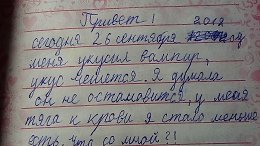 Привет! 2012
сегодня 26 сентября год
меня укусил вампир,
укус чешется. Я думала
он не остановится, у меня
тяга к крови я стала меньше
есть, что со мной?!